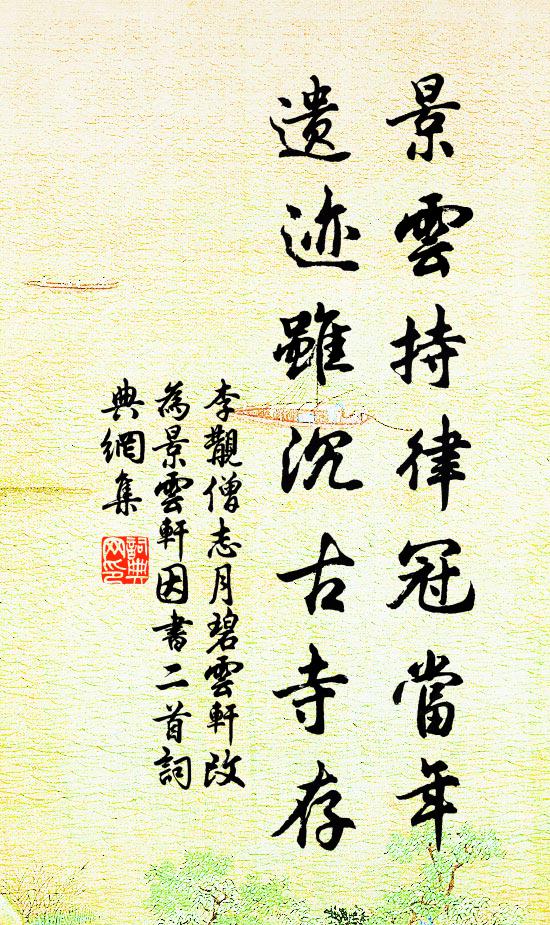 景雲持律冠當年
遺迹雖沉古寺存
李覯僧志月碧雲軒改
為景雲軒因書二首詞
典網集
詞典
网印